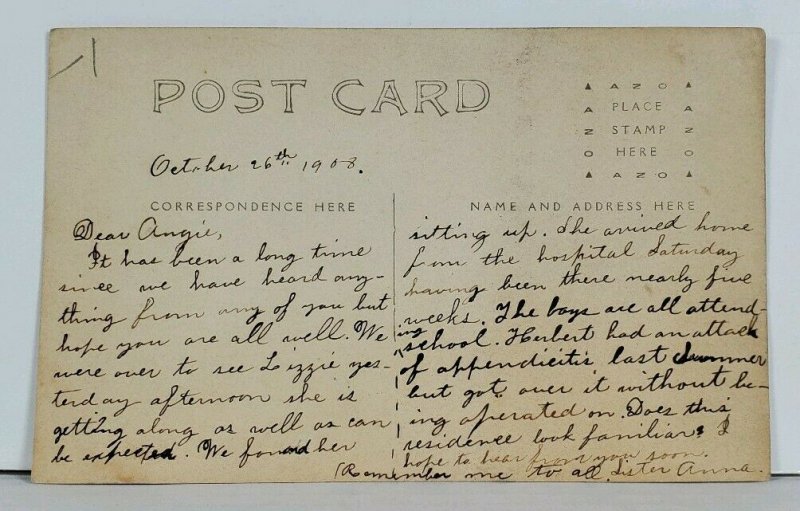 POST CARD
AZO
PLACE
STAMP
HERE
AZO
AZO
AZO
October 26th 1908.
CORRESPONDENCE HERE
NAME AND ADDRESS HERE
Dear Angie,
It has been a long time
since we have heard any-
thing from any of you but
hope you are all well. We
were over to see Lizzie yes-
terday afternoon she is
getting along as well as can
be expected. We found her
sitting up. She arrived home
from the hospital Saturday
having been there nearly five
weeks. The boys are all attend-
ing school. Herbert had an attack
of appendicitis last summer
but got over it without be-
ing operated on. Does this
residence look familiar? I
hope to hear from you soon.
(Remember me to all. Sister Anna.